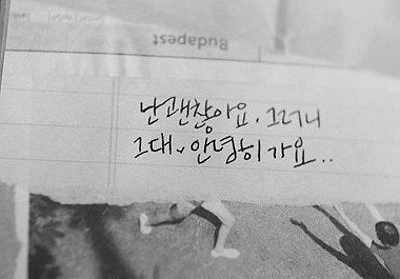 Budapest
난 괜찮아요. 그러니
그대 안녕히 가요..